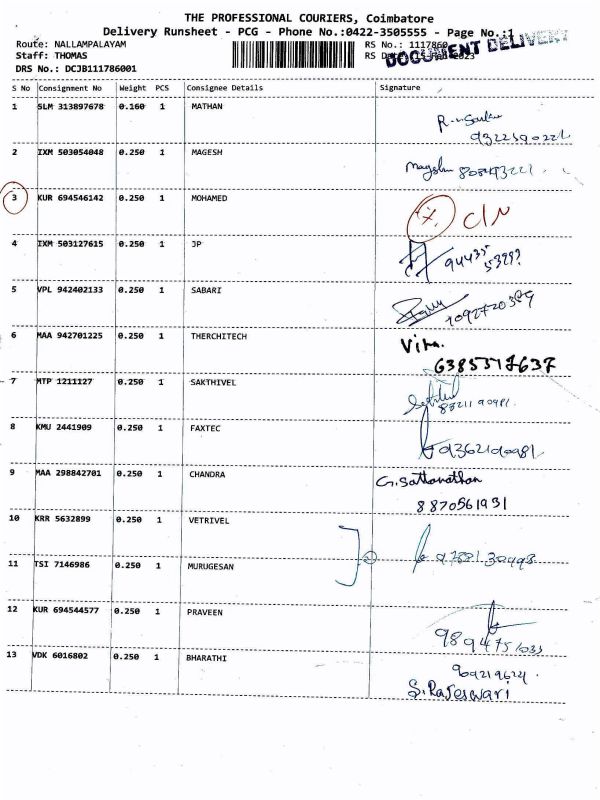 THE PROFESSIONAL COURIERS, Coimbatore
Delivery Runsheet - PCG - Phone No.:0422-3505555 - Page No.:1
Route: NALLAMPALAYAM RS No.: 1117860
Staff: THOMAS RS
DRS No.: DCJB111786001
DOCUMENT DELIVERY
S No Consignment No Weight PCS Consignee Details Signature
1 SLM 313897678 0.160 1 MATHAN
2 IXM 503054048 0.250 1 MAGESH
3 KUR 694546142 0.250 1 MOHAMED C/N
4 IXM 503127615 0.250 1 JP
5 VPL 942402133 0.250 1 SABARI
6 MAA 942701225 0.250 1 THERCHITECH
6385517637
7 MTP 1211127 0.250 1 SAKTHIVEL
8 KMU 2441909 0.250 1 FAXTEC
9 MAA 298842701 0.250 1 CHANDRA G.Sattanathan
8870561931
10 KRR 5632899 0.250 1 VETRIVEL
11 TSI 7146986 0.250 1 MURUGESAN
12 KUR 694544577 0.250 1 PRAVEEN
13 VDK 6016802 0.250 1 BHARATHI
S.Rajeswari